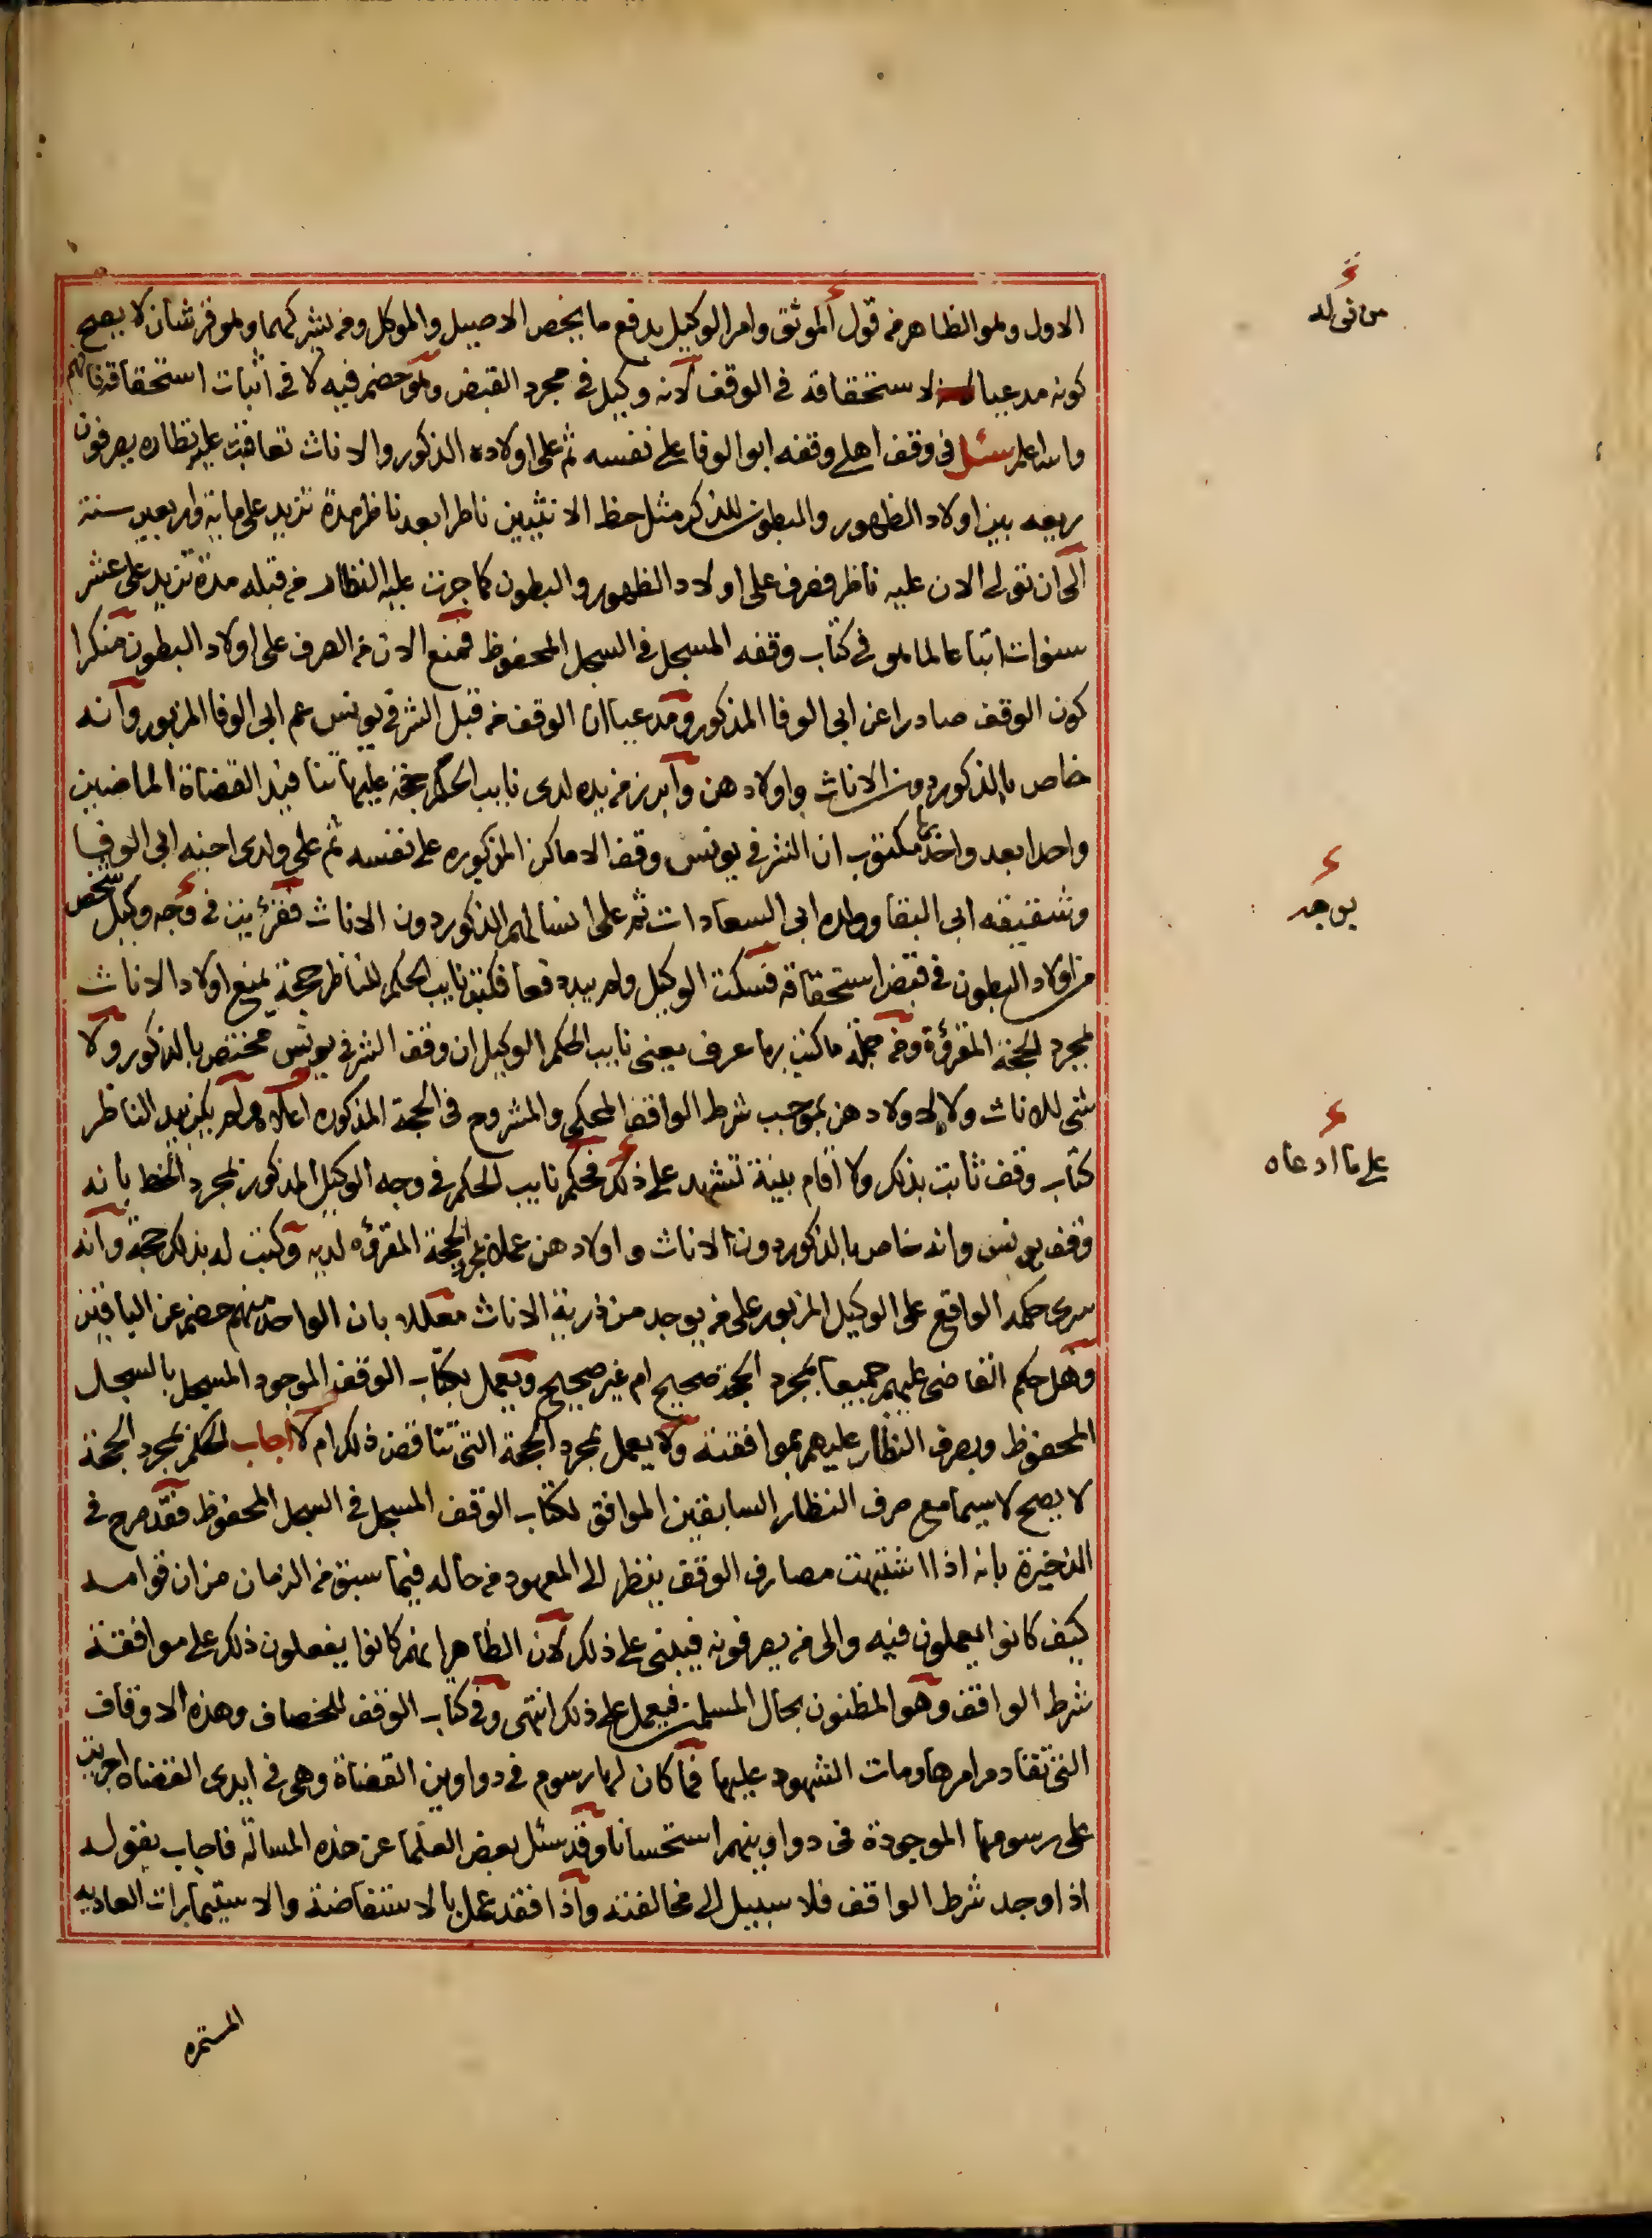 الاول وهو الظاهر من قول الموثق وامر الوكيل بدفع ما يخص الاصيل والموكل ومن يشركهما وهو من شأن لا يصح
كونه مدعيا لاستحقاقه في الوقف لانه وكيل في مجرد القبض وهو خصم فيه لا في اثبات استحقاقه فافهم
والله اعلم سئل في وقف اهلي وقفه ابو الوفا على نفسه ثم على اولاده الذكور والاناث تعاقبت عليه نظاره يصرفون
ريعه بين اولاد الظهور والبطون للذكر مثل حظ الانثيين ناظرا بعد ناظر مدة تزيد على ماية واربعين سنة
الى ان تولى الان عليه ناظر فصرف على اولاد الظهور والبطون كما جرت عليه النظار من قبله مدة تزيد على عشر
سنوات اتباعا لما هو في كتاب وقفه المسجل في السجل المحفوظ فمنع الان من الصرف على اولاد البطون منكرا
كون الوقف صادرا عن ابي الوفا المذكور ومدعيا ان الوقف من قبل الشرفي يونس عم ابي الوفا المزبور وانه
خاص بالذكور دون الاناث واولادهن وابرز من يده لدى نايب الحكم حجة عليها تنافيذ القضاة الماضيين
واحدا بعد واحد مكتوب بها ان الشرفي يونس وقف الاماكن المذكوره على نفسه ثم على ولدى اخيه ابي الوفا
وشقيقه ابي البقا وولده ابي السعادات ثم على انسالهم الذكور دون الاناث فقرئت في وجه وكيل شخص
من اولاد البطون في قبض استحقاقه فسكت الوكيل ولم يبد دفعا فكتب نايب الحكم للناظر حجة بمنع اولاد الاناث
بمجرد الحجة المقرؤة ومن جملة ما كتب بها عرف يعني نايب الحكم الوكيل ان وقف الشرفي يونس مختص بالذكور ولا
شئ للاناث ولا لاولادهن بموجب شرط الواقف المحكي والمشروح في الحجة المذكوره اعلاه ولم يكن بيد الناظر
كتاب وقف ثابت بذلك ولا اقام بينة تشهد على ذلك فحكم نايب الحكم في وجه الوكيل المذكور بمجرد الخط بانه
وقف يونس وانه خاص بالذكور دون الاناث واولادهن عملا بمجرد الحجة المقرؤه لديه وكتبت له بذلك حجة وانه
سرى حكمه الواقع على الوكيل المزبور على من يوجد من ذرية الاناث معللا بان الواحد منهم خصم عن الباقين
وهل حكم القاضي عليهم جميعا بمجرد الحجة صحيح ام غير صحيح ويعمل بكتاب الوقف الموجود المسجل بالسجل
المحفوظ وبصرف النظار عليهم بموافقته ولا يعمل بمجرد الحجة التي تناقض ذلك ام لا اجاب الحكم بمجرد الحجة
لا يصح لا سيما مع صرف النظار السابقين الموافق لكتاب الوقف المسجل في السجل المحفوظ فقد صرح في
الذخيرة بانه اذا اشتبهت مصارف الوقف ينظر الى المعهود من حاله فيما سبق من الزمان من ان قوامه
كيف كانوا يعملون فيه والى من يصرفونه فيبنى على ذلك لان الظاهر انهم كانوا يفعلون ذلك على موافقة
شرط الواقف وهو المظنون بحال المسلمين فيعمل على ذلك انتهى وفي كتاب الوقف للخصاف وهذه الاوقاف
التي تقادم امرها ومات الشهود عليها فما كان لها رسوم في دواوين القضاة وهي في ايدى القضاة اجريت
على رسومها الموجودة في دواوينهم استحسانا وقد سئل بعض العلما عن هذه المسألة فاجاب بقوله
اذا وجد شرط الواقف فلا سبيل الى مخالفته واذا فقد عمل بالاستفاضة والاستيمارات العاديه
المستمره
من تولد
يوجد
على ما ادعاه